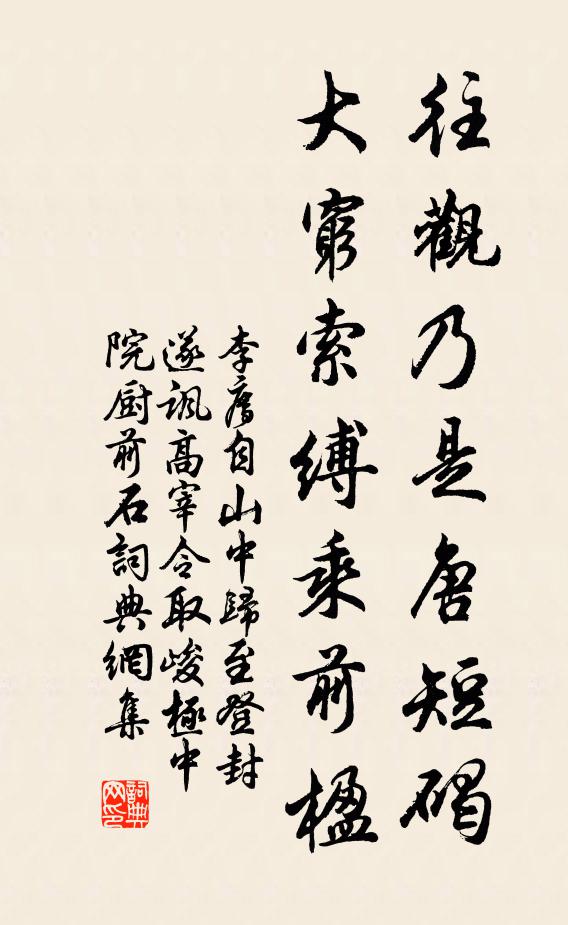 往觀乃是唐短碣
大窮索縛乘前楹
李廌自山中歸至登封
遂訊高宰令取峻極中
院厨前石詞典網集
詞典
网印